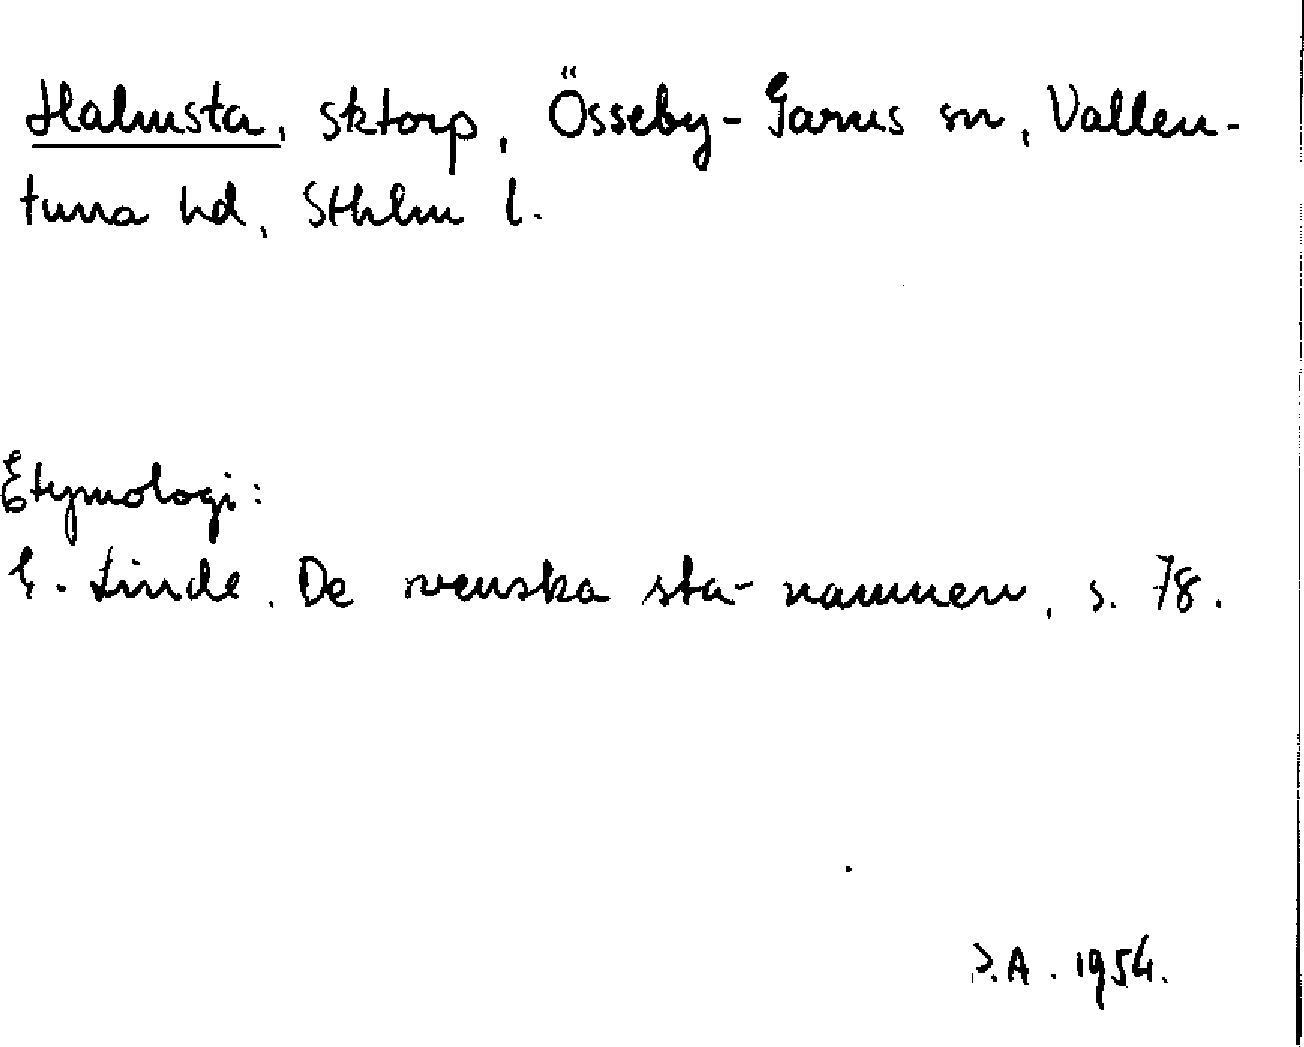 Halmsta, sktorp, Össeby-Garns sn, Vallen-
tuna hd, Sthlm l.
Etymologi:
G. Linde, De svenska sta-namnen, s. 78.
P.A. 1954.